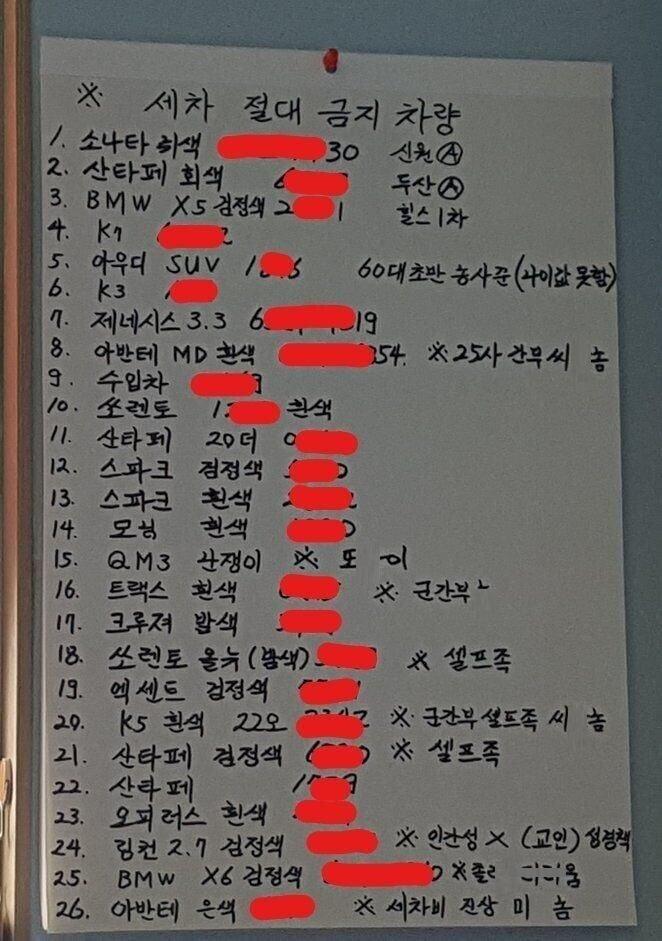 ※ 세차 절대 금지 차량
1. 소나타 30 신원 Ⓐ
2. 산타페 회색 6 두산 Ⓐ
3. BMW X5 검정색 2 1 힐스 1차
4. K7
5. 아우디 SUV 1 6 60대초반 농사꾼 (나이값 못함)
6. K3
7. 제네시스 3.3 6 19
8. 아반테 MD 흰색 354. ※ 25사 간부 씨 놈
9. 수입차
10. 쏘렌토 1 흰색
11. 산타페 20더 0
12. 스파크 검정색 0
13. 스파크 흰색
14. 모닝 흰색 0
15. QM3 난쟁이 ※ 또 이
16. 트랙스 흰색 ※ 군간부
17. 크루져 밤색
18. 쏘렌토 올뉴 (밤색) ※ 셀프족
19. 엑센트 검정색
20. K5 흰색 22오 ※ 군간부 셀프족 씨 놈
21. 산타페 검정색 6 0 ※ 셀프족
22. 산타페 1 9
23. 오피러스 흰색
24. 링컨 2.7 검정색 ※ 인간성 X (교인) 성경책
25. BMW X6 검정색 0 ※ 졸라
26. 아반테 은색 ※ 세차비 진상 미 놈